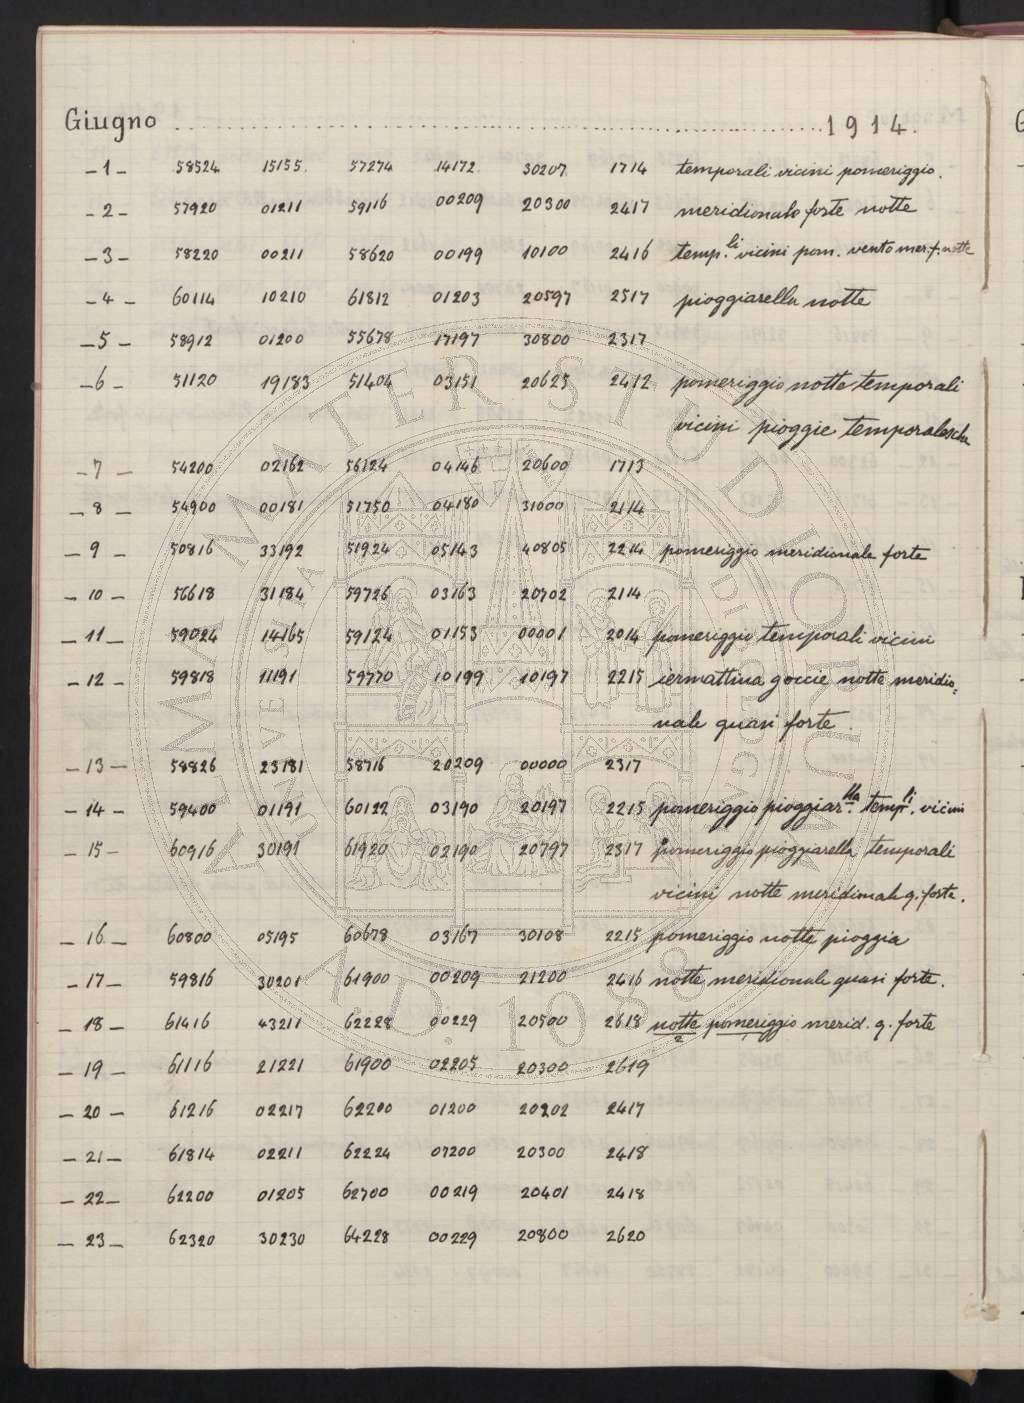 Giugno 1914.
-1- 58524 15155. 57274 14172. 30207 1714 temporali vicini pomeriggio.
-2- 57920 01211 59116 00209 20300 2417 meridionale forte notte
-3- 58220 00211 58620 00199 10100 2416 temp.li vicini pom. vento mer. f. notte
-4- 60114 10210 61812 01203 20597 2517 pioggiarella notte
-5- 58912 01200 55678 17197 30800 2317
-6- 51120 19183 51404 03151 20625 2412 pomeriggio notte temporali
vicini pioggie temporalesche
-7- 54200 02162 56124 04146 20600 1713
-8- 54900 00181 51750 04180 31000 2114
-9- 50816 33192 51924 05143 40805 2214 pomeriggio meridionale forte
-10- 56618 31184 59726 03163 20702 2114
-11- 59024 14165 59124 01153 00001 2014 pomeriggio temporali vicini
-12- 59818 11191 59770 10199 10197 2215 iermattina goccie notte meridio=
nale quasi forte.
-13- 58826 23181 58716 20209 00000 2317
-14- 59400 01191 60122 03190 20197 2215 pomeriggio pioggiar.lla temp.li vicini
-15- 60916 30191 61920 02190 20797 2317 pomeriggio pioggiarella temporali
vicini notte meridionale q. forte.
-16- 60800 05195 60678 03167 30108 2215 pomeriggio notte pioggia
-17- 59816 30201 61900 00209 21200 2416 notte meridionale quasi forte.
-18- 61416 43211 62228 00229 20500 2618 notte pomeriggio merid. q. forte
2 1
-19- 61116 21221 61900 02205 20300 2619
-20- 61216 02217 62200 01200 20202 2417
-21- 61814 02211 62224 07200 20300 2418
-22- 62200 01205 62700 00219 20401 2418
-23- 62320 30230 64228 00229 20800 2620
ALMA MATER STUDIORUM
A.D. 1088